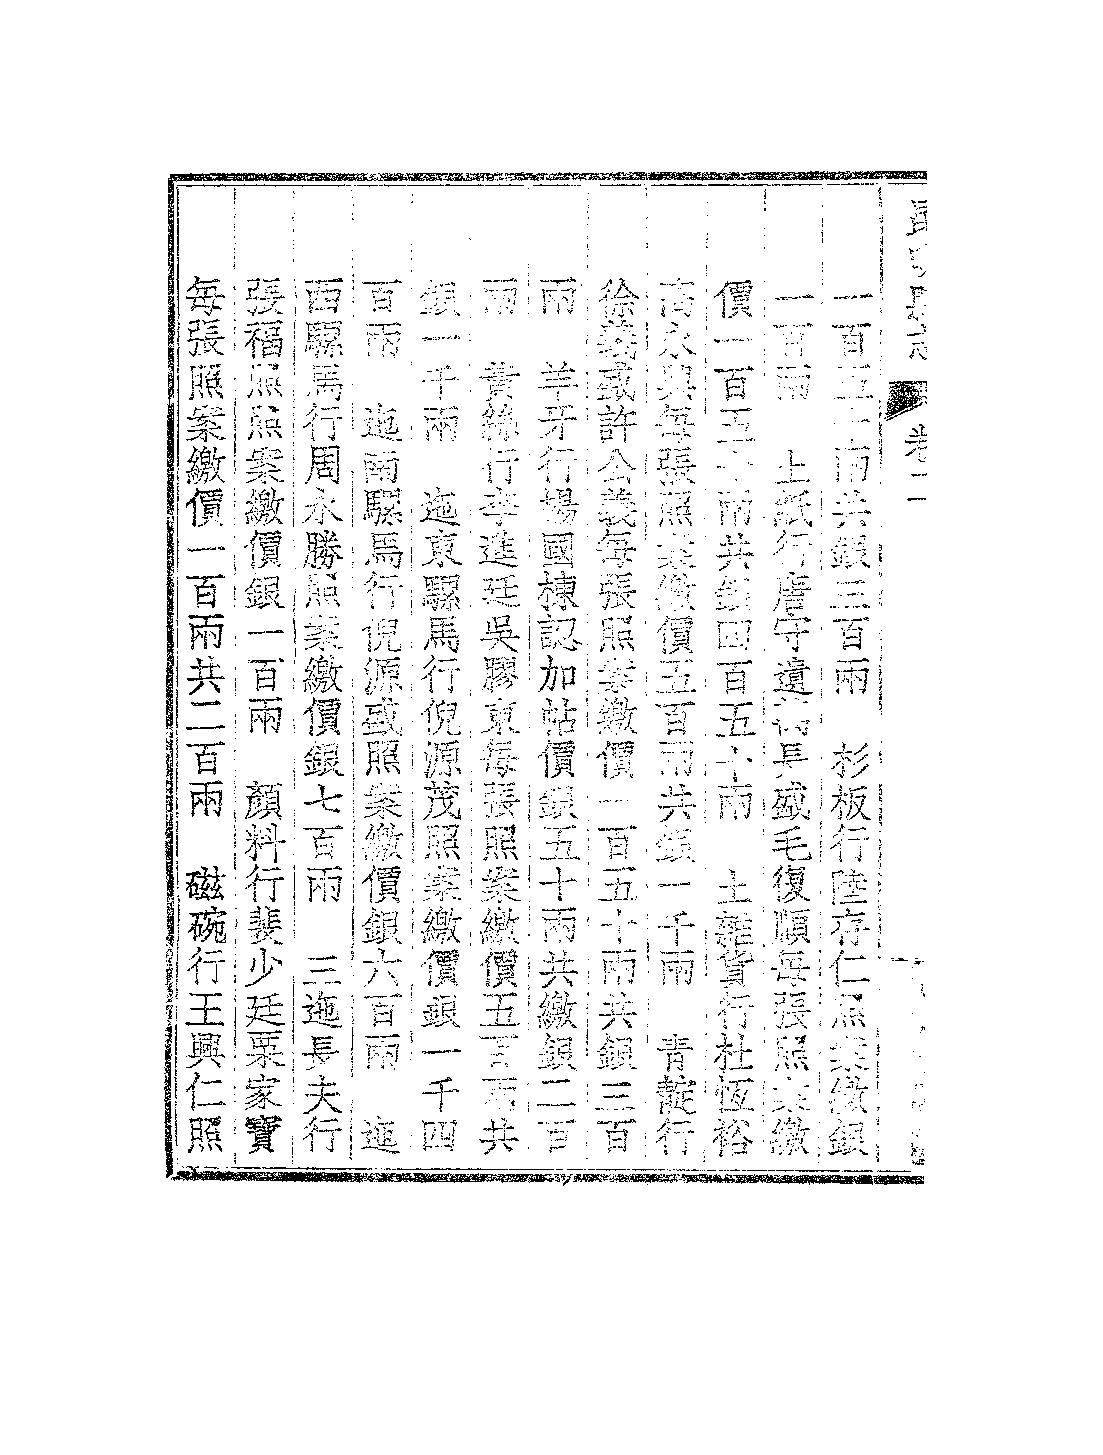 卷二
一百五十兩共銀三百兩　杉板行陸存仁照案繳銀
一百兩　土紙行唐守遺萬長盛毛復順每張照案繳
價一百五十兩共銀四百五十兩　土雜貨行杜恆裕
高永興每張照案繳價五百兩共銀一千兩　青靛行
徐義或許公義每張照案繳價一百五十兩共銀三百
兩　羊牙行場國棟認加帖價銀五十兩共繳銀二百
兩　黃絲行李進廷吳膠東每張照案繳價五百兩共
銀一千兩　迤東騾馬行倪源茂照案繳價銀一千四
百兩　迤南騾馬行倪源或照案繳價銀六百兩　迤
西騾馬行周永勝照案繳價銀七百兩　三迤長夫行
張福照照案繳價銀一百兩　顏料行裴少廷粟家寶
每張照案繳價一百兩共二百兩　磁碗行王興仁照